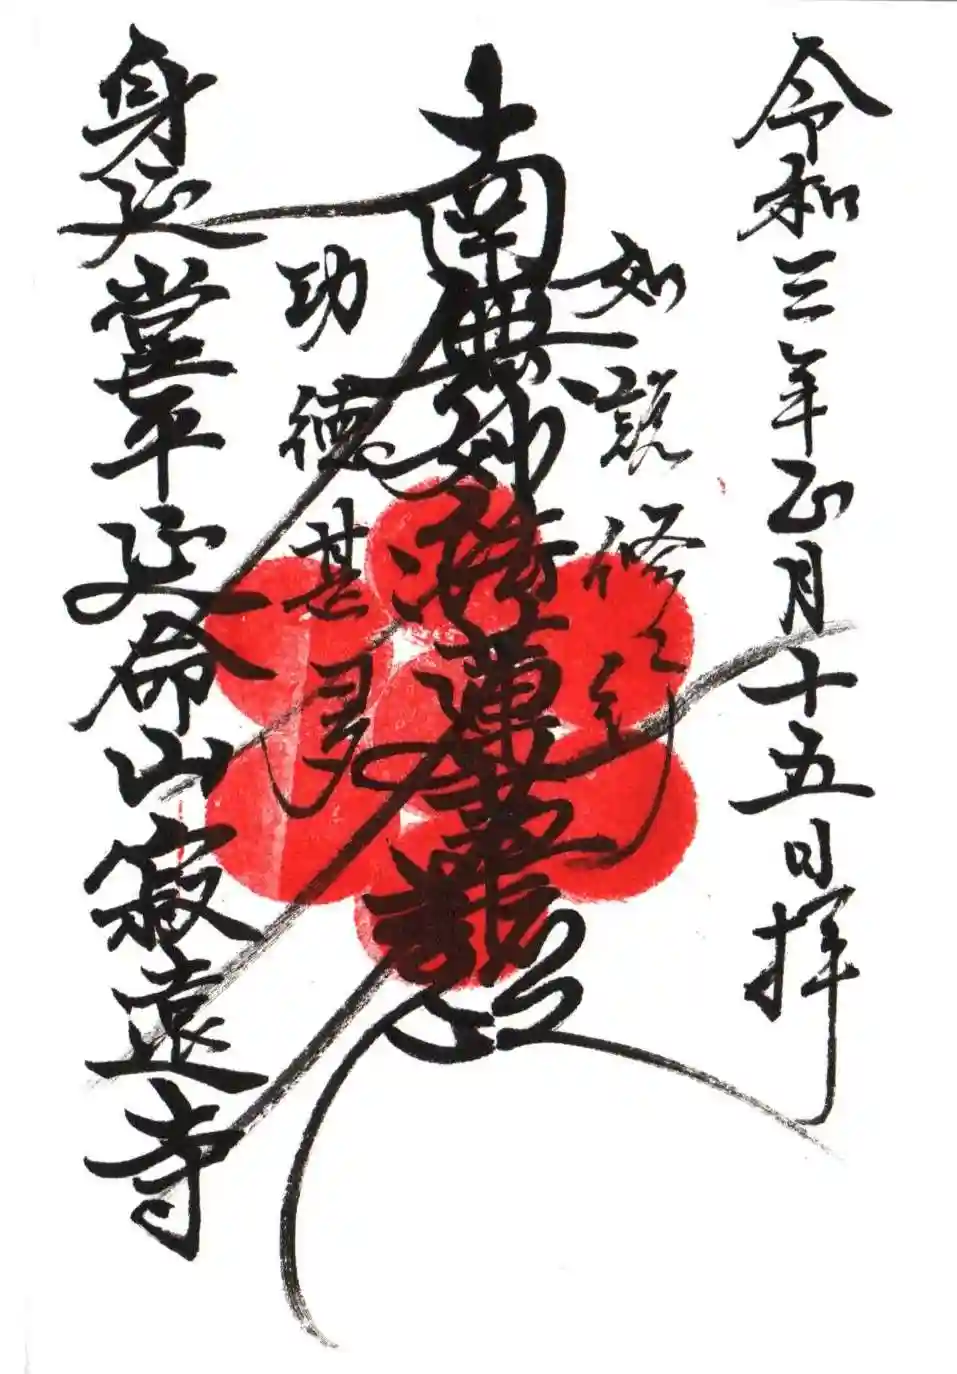 令和三年正月十五日拝
如説修行
南無妙法蓮華経
功徳甚多
身延當平延命山寂遠寺